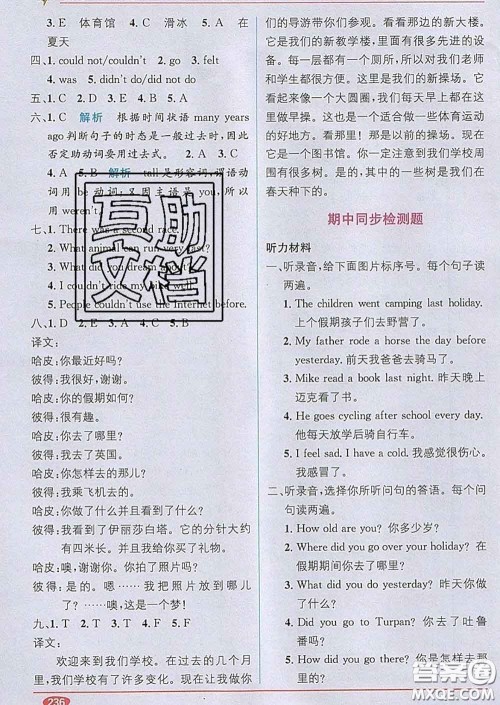 3. E 体育馆 4. C 滑冰 5. A 在
夏天
四、1. could not/couldn't 2. go 3. felt
4. was 5. didn't do/did not do
五、1. C 2. D 3. E 4. B 5. A
六、1. C 解析 根据时间状语 many years
ago 判断句子的时态是一般过去时,因此
否定助动词要用过去式。 2. A 3. C
4. A 5. B 解析 tall 是形容词,谓语动
词用 be 动词;又因主语是 you,所以
用 weren't。
七、1. There was a second race.
2. What animal can run very fast?
3. What did you dream about?
4. I couldn't ride my bike well.
5. People couldn't use the Internet before.
八、1. D 2. E 3. A 4. C 5. B
译文:
哈皮:你最近好吗?
彼得:我很好,谢谢。
哈皮:你的假期如何?
彼得:很有趣。
哈皮:你去了哪里?
彼得:我去了英国。
哈皮:你怎样去的那儿?
彼得:我乘飞机去的。
哈皮:你做了什么并且看到了什么?
彼得:我看到了伊丽莎白塔。它的分针大约
有四米长。并且我购买了礼物。
哈皮:噢,谢谢你。你拍照片了吗?
彼得:是的。嗯……我把照片放到哪儿
了?……噢,这是一个梦!
九、1. T 2. T 3. T 4. F 5. F
译文:
欢迎来到我们学校。在过去的几个月
里,我们学校有了许多变化。现在让我做你
236
们的导游带你们参观。看看那边的新大楼。
它是我们的新教学楼。里面有很多先进的设
备。我们每一层有一个厕所,所以对我们老师
和学生都很方便。这里是我们的新操场。它
看起来像一个大圆圈,我们每天早上都在这
里做早操。这也是一个适合做一些体育运动
的好地方。看那里,那是以前的操场。现在
它是一个图书馆。你一定注意到我们学校周
围有很多树。是的,其中的一些树是我们在
春天种下的。
期中同步检测题
听力材料
一、听录音,给下面图片标序号。每个句子读
两遍。
1. The children went camping last holiday.
上个假期孩子们去野营了。
2. My father rode a horse the day before
yesterday. 前天我爸爸去骑马了。
3. Mike read a book last night. 昨天晚上
迈克看了书。
4. He goes cycling after school every day.
他每天放学后骑自行车。
5. I feel sad. I have a cold. 我感觉很伤心。
我感冒了。
二、听录音,选择你所听问句的答语。每个问
句读两遍。
1. How old are you? 你多少岁?
2. Where did you go over your holiday? 在
假期期间你们去了哪里?
3. What did you do yesterday? 昨天你做
了什么?
4. Did you go to Turpan? 你们去了吐鲁
番吗?
5. How did you go there? 你是怎样去那
互助
文档
答案圈
MXQE.COM